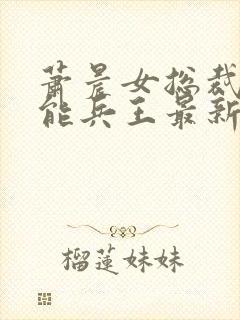 萧晨女总裁
能兵王最新
榴莲妹妹